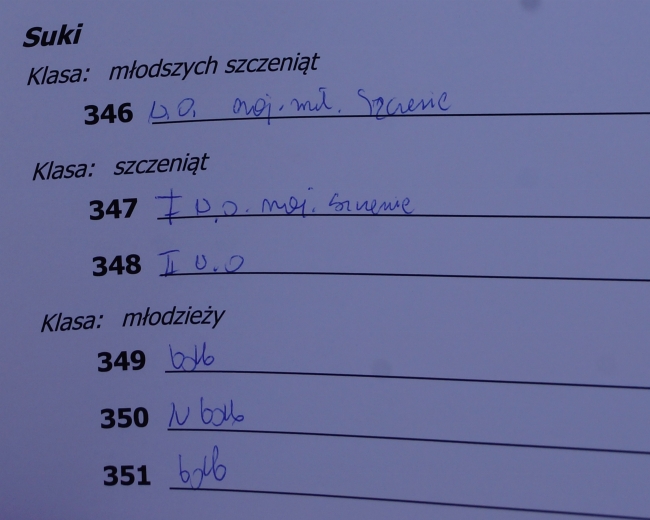 Suki
Klasa: młodszych szczeniąt
346 w.o. naj. mł. Szczenię
Klasa: szczeniąt
347 I w.o. naj. szczenię
348 II w.o
Klasa: młodzieży
349 bdb
350 IV bdb
351 bdb